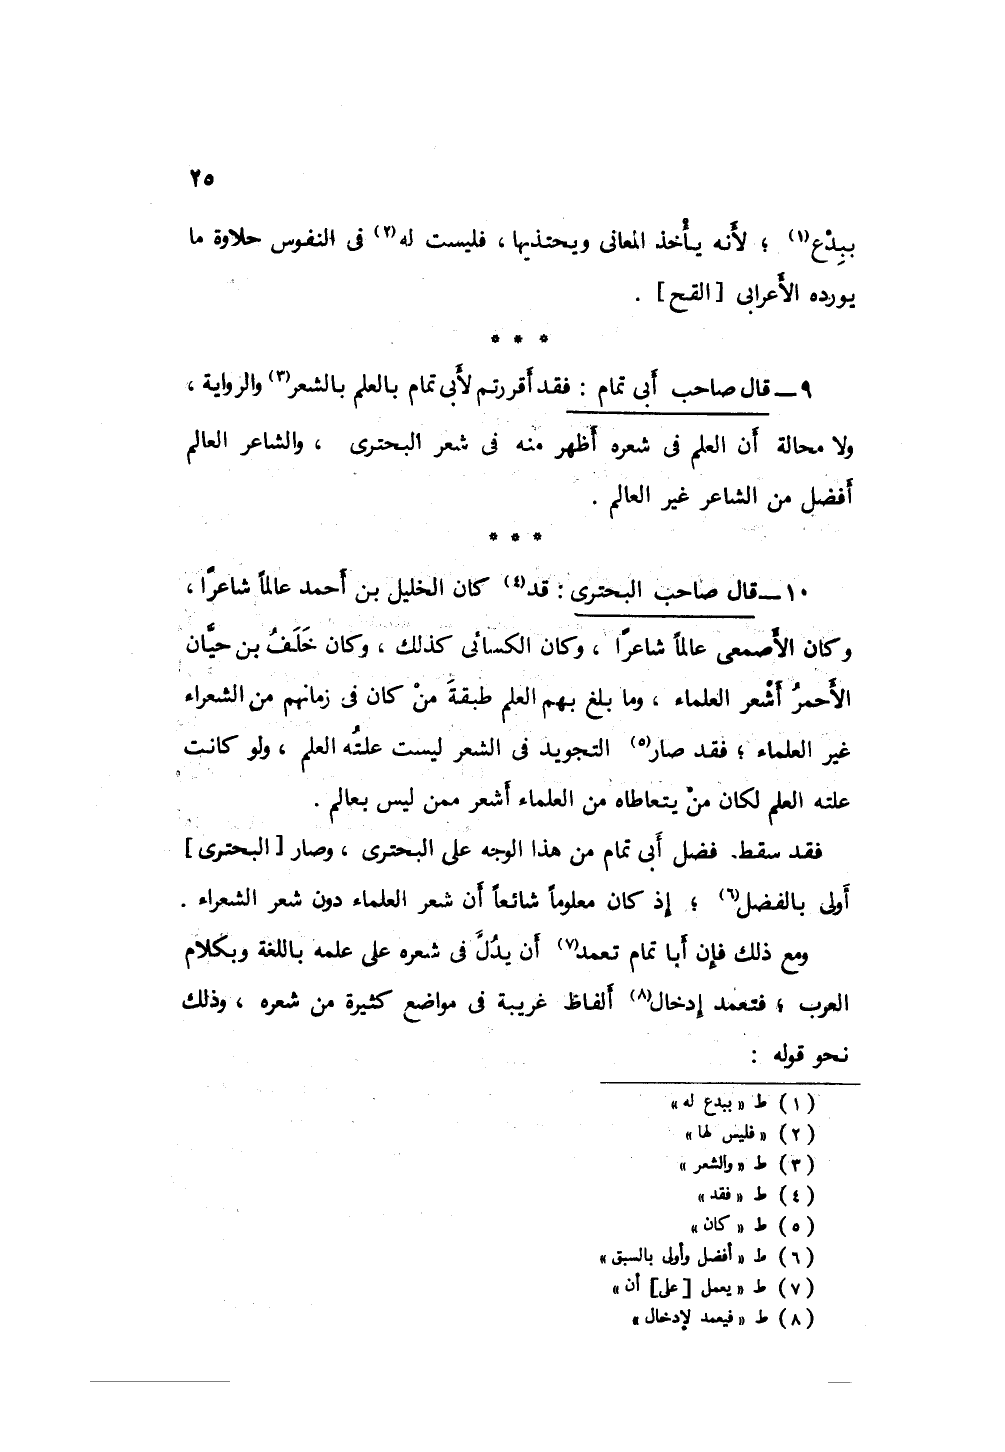 ٢٥
ببِدْع(١) ؛ لأَنه يأْخذ المعانى ويحتذيها ، فليست له(٢) فى النفوس حلاوة ما
يورده الأَعرابى [ القح ] .
* * *
٩ ــ قال صاحب أَبى تمام : فقد أَقررتم لأَبى تمام بالعلم بالشعر(٣) والرواية ،
ولا محالة أَن العلم فى شعره أَظهر منه فى شعر البحترى ، والشاعر العالم
أَفضل من الشاعر غير العالم .
* * *
١٠ ــ قال صاحب البحترى : قد(٤) كان الخليل بن أَحمد عالماً شاعرًا ،
وكان الأَصمعى عالماً شاعرًا ، وكان الكسائى كذلك ، وكان خَلَفُ بن حيَّان
الأَحمرُ أَشْعر العلماء ، وما بلغ بهم العلم طبقةَ منْ كان فى زمانهم من الشعراء
غير العلماء ؛ فقد صار(٥) التجويد فى الشعر ليست علتُه العلم ، ولو كانت
علته العلم لكان منْ يتعاطاه من العلماء أَشعر ممن ليس بعالم .
فقد سقط. فضل أَبى تمام من هذا الوجه على البحترى ، وصار [ البحترى ]
أَولى بالفضل(٦) ؛ إذ كان معلوماً شائعاً أَن شعر العلماء دون شعر الشعراء .
ومع ذلك فإن أَبا تمام تعمد(٧) أَن يدُلَّ فى شعره على علمه باللغة وبكلام
العرب ؛ فتعمد إدخال(٨) أَلفاظ غريبة فى مواضع كثيرة من شعره ، وذلك
نحو قوله :
( ١ ) ط « ببدع له »
( ٢ ) « فليس لها »
( ٣ ) ط « والشعر »
( ٤ ) ط « فقد »
( ٥ ) ط « كان »
( ٦ ) ط « أفضل وأولى بالسبق »
( ٧ ) ط « يعمل [ على ] أن »
( ٨ ) ط « فيعمد لإدخال »